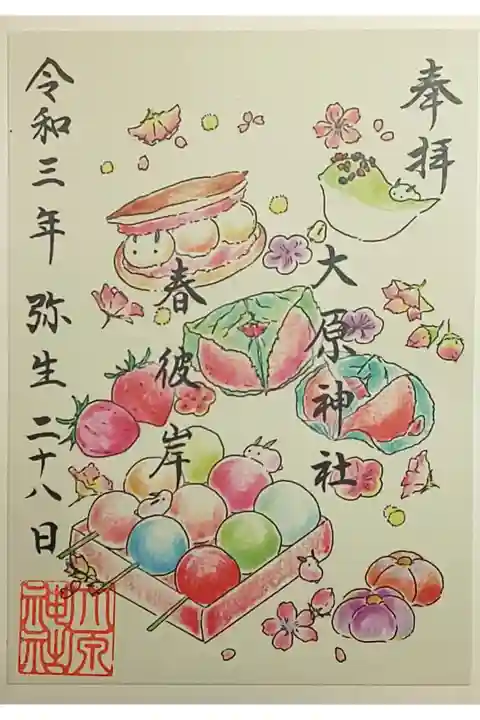 奉拝
大原神社
春彼岸
令和三年 弥生 二十八日
大原
神社